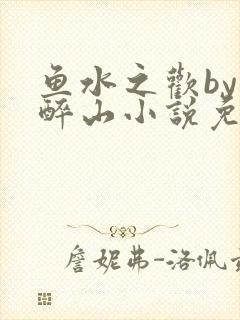 鱼水之歡by
醉山小説免
詹妮弗-洛佩